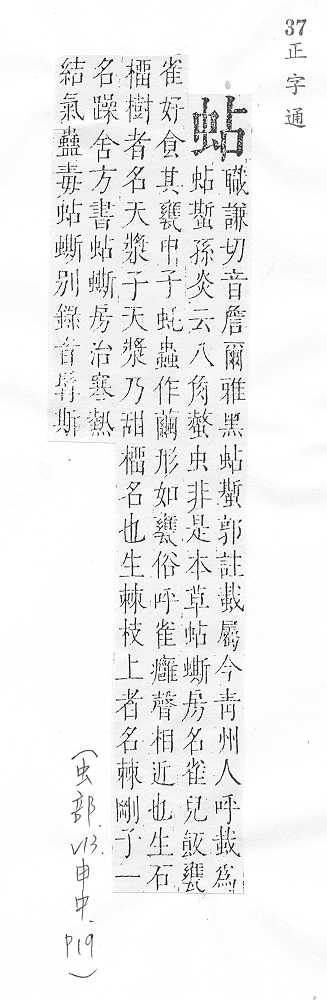 37
正字通
蛅
職謙切音詹爾雅黑蛅蟴郭註蛓屬今青州人呼蛓爲
蛅蟴孫炎云八角螫虫非是本草蛅蟖房名雀兒飯甕
雀好食其甕中子蚝蟲作繭形如甕俗呼雀癰聲相近也生石
橊樹者名天漿子天漿乃甜橊名也生棘枝上者名棘剛子一
名躁舍方書蛅蟖房治寒熱
結氣蠱毒蛅蟖別錄音髯斯
(虫部.
V13.
申中.
P19)